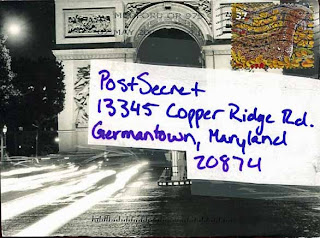 MEDFORD OR 97
MAY
37
PostSecret
13345 Copper Ridge Rd.
Germantown, Maryland
20874